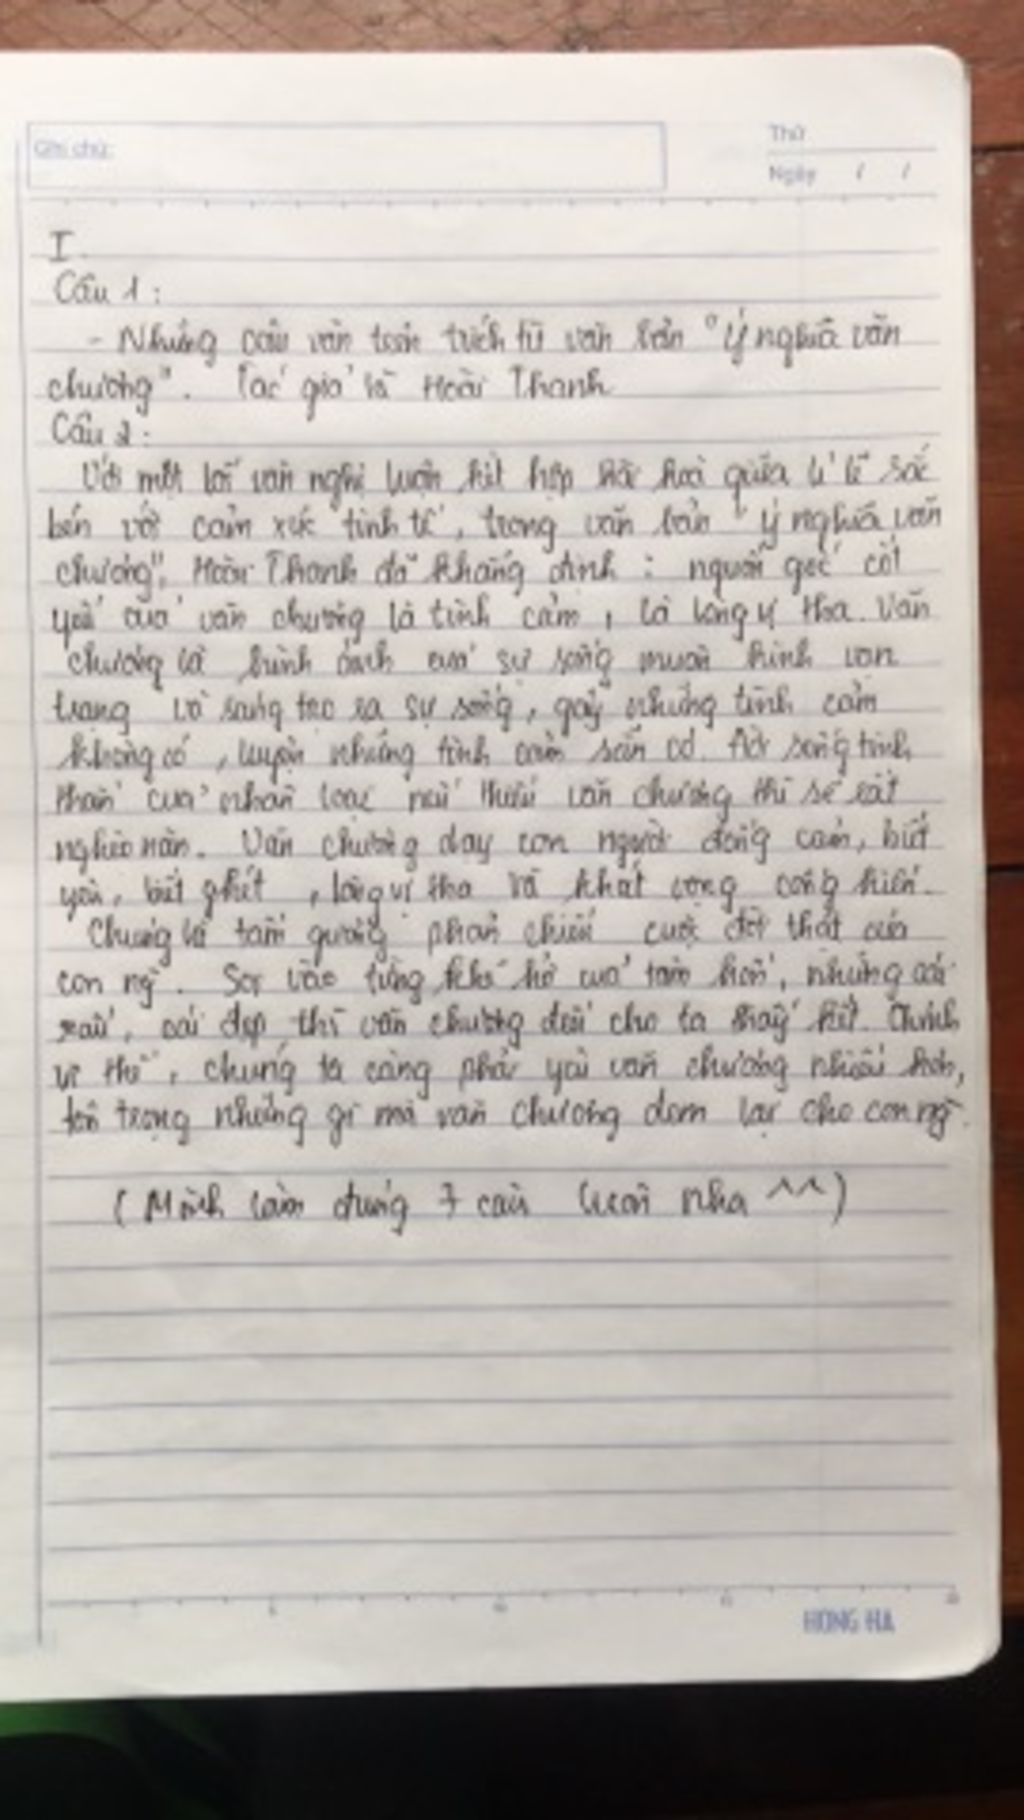 Ghi chú:
Thứ
Ngày / /
I.
Câu 1:
- Những câu văn trên trích từ văn bản "Ý nghĩa văn
chương". Tác giả là Hoài Thanh
Câu 2:
Với một lối văn nghị luận kết hợp hài hoà giữa lí lẽ sắc
bén với cảm xúc tinh tế, trong văn bản "Ý nghĩa văn
chương", Hoài Thanh đã khẳng định: nguồn gốc cốt
yếu của văn chương là tình cảm, là lòng vị tha. Văn
chương là hình ảnh của sự sống muôn hình vạn
trạng và sáng tạo ra sự sống, gây những tình cảm
không có, luyện những tình cảm sẵn có. Đời sống tinh
thần của nhân loại nếu thiếu văn chương thì sẽ rất
nghèo nàn. Văn chương dạy con người đồng cảm, biết
yêu, biết ghét, lòng vị tha và khát vọng cống hiến.
Chúng là tấm gương phản chiếu cuộc đời thật của
con ng. Soi vào từng kẽ hở của tâm hồn, những cái
xấu, cái đẹp thì văn chương đều cho ta thấy hết. Chính
vì thế, chúng ta càng phải yêu văn chương nhiều hơn,
tôn trọng những gì mà văn chương đem lại cho con ng.
(Mình làm đúng 7 câu luôn nha ^^)
HONG HA